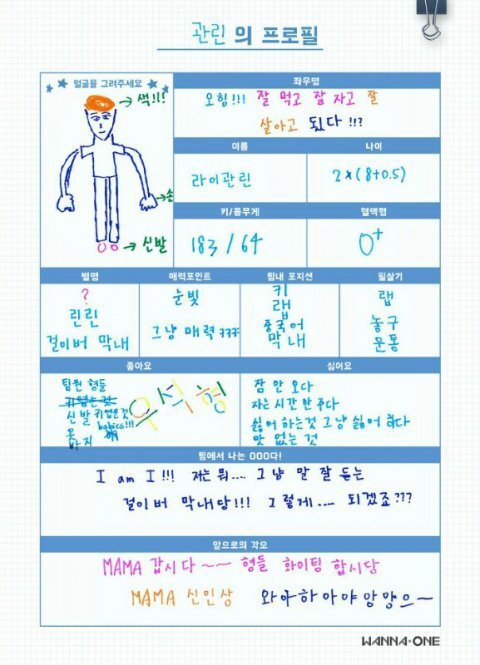 관린 의 프로필
얼굴을 그려주세요
→ 색!!!
→ 손
→ 신발
좌우명
오힘!!! 잘 먹고 잘 자고 잘
살아고 되다!!!
이름
라이관린
나이
2×(8+0.5)
키/몸무게
183 / 64
혈액형
O+
별명
?
린린
걸이버 막내
매력포인트
눈빛
그냥 매력 ㅋㅋㅋ
팀내 포지션
키
랩
중국어
막내
필살기
랩
농구
운동
좋아요
팀원 형들
귀엽는 것
신발 귀엽은것
babies!!!
옷
바지
우석형
싫어요
잠 안 오다
자는 시간 안 주다
싫어 하는것 그냥 싫어 하다
맛 없는 것
팀에서 나는 OOO다!
I am I !!! 저는 뭐.... 그냥 말 잘 듣는
걸이버 막내당!!! 그렇게.... 되겠죠???
앞으로의 각오
MAMA 갑시다~~ 형들 화이팅 합시당
MAMA 신인상 와아하아야앙앙으~
WANNA·ONE